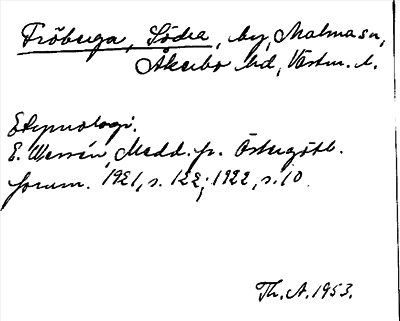 Fröberga, Södra, by, Malma sn,
Åkerbo hd, Västm. l.
Etymologi.
E. Wessén, Medd. fr. Östergötl.
fornm. 1921, s. 122; 1922, s. 10.
Th. A. 1953.